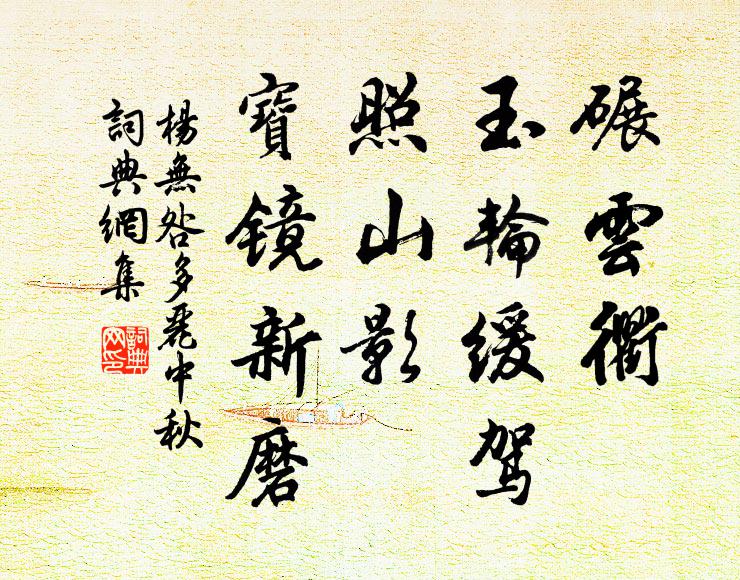 碾雲衢
玉輪緩驾
照山影
寶镜新磨
楊無咎多麗中秋
詞典網集
詞典網印